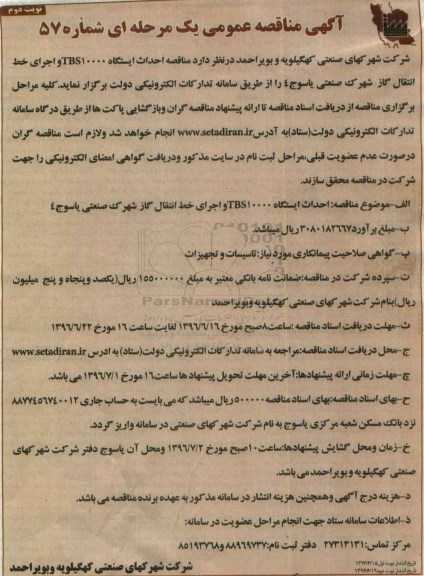 نوبت دوم
آگهی مناقصه عمومی یک مرحله ای شماره ۵۷
شرکت شهرکهای صنعتی کهگیلویه و بویراحمد درنظر دارد مناقصه احداث ایستگاه TBS۱۰۰۰۰و اجرای خط
انتقال گاز شهرک صنعتی یاسوج٤ را از طریق سامانه تدارکات الکترونیکی دولت برگزار نماید.کلیه مراحل
برگزاری مناقصه از دریافت اسناد مناقصه تا ارائه پیشنهاد مناقصه گران وبازگشایی پاکت ها از طریق درگاه سامانه
تدارکات الکترونیکی دولت(ستاد)به آدرس www.setadiran.ir انجام خواهد شد ولازم است مناقصه گران
درصورت عدم عضویت قبلی،مراحل ثبت نام در سایت مذکور ودریافت گواهی امضای الکترونیکی را جهت
شرکت در مناقصه محقق سازند.
الف-موضوع مناقصه: احداث ایستگاه TBS۱۰۰۰۰و اجرای خط انتقال گاز شهرک صنعتی یاسوج٤
ب-مبلغ برآورد۳۰۸۰۱۸۲۶۶۷ ریال میباشد.
پ-گواهی صلاحیت پیمانکاری مورد نیاز:تاسیسات و تجهیزات
ت-سپرده شرکت در مناقصه:ضمانت نامه بانکی معتبر به مبلغ ۱۵۵۰۰۰۰۰۰ ریال(یکصد وپنجاه و پنج میلیون
ریال)بنام شرکت شهرکهای صنعتی کهگیلویه و بویراحمد
ث-مهلت دریافت اسناد مناقصه :ساعت۸صبح مورخ ۱۳۹۶/۶/۱۶ لغایت ساعت ۱۶ مورخ ۱۳۹۶/۶/۲۲
ج-محل دریافت اسناد مناقصه:مراجعه به سامانه تدارکات الکترونیکی دولت(ستاد) به ادرس www.setadiran.ir
چ-مهلت زمانی ارائه پیشنهادها:آخرین مهلت تحویل پیشنهاد ها ساعت۱۶ مورخ ۱۳۹۶/۷/۱ می باشد.
ح-بهای اسناد مناقصه:بهای اسناد مناقصه۵۰۰۰۰۰ ریال میباشد که می بایست به حساب جاری ۸۸۷۷٤۵۶۷٤۰۰۱۲
نزد بانک مسکن شعبه مرکزی یاسوج به نام شرکت شهر کهای صنعتی در سامانه واریز گردد.
خ-زمان ومحل گشایش پیشنهادها:ساعت۱۰صبح مورخ ۱۳۹۶/۷/۲ ومحل آن یاسوج دفتر شرکت شهر کهای
صنعتی کهگیلویه و بویراحمد می باشد.
د-هزینه درج آگهی وهمچنین هزینه انتشار در سامانه مذکور به عهده برنده مناقصه می باشد.
ذ-اطلاعات سامانه ستاد جهت انجام مراحل عضویت در سامانه:
مرکز تماس:۲۷۳۱۳۱۳۱ دفتر ثبت نام:۸۸۹۶۹۷۳۷ و۸۵۱۹۳۷۶۸
شرکت شهرکهای صنعتی کهگیلویه وبویراحمد
تاریخ انتشار نوبت اول:۱۳۹۶/۶/۱۵
تاریخ انتشار نوبت دوم:۱۳۹۶/۶/۱۹